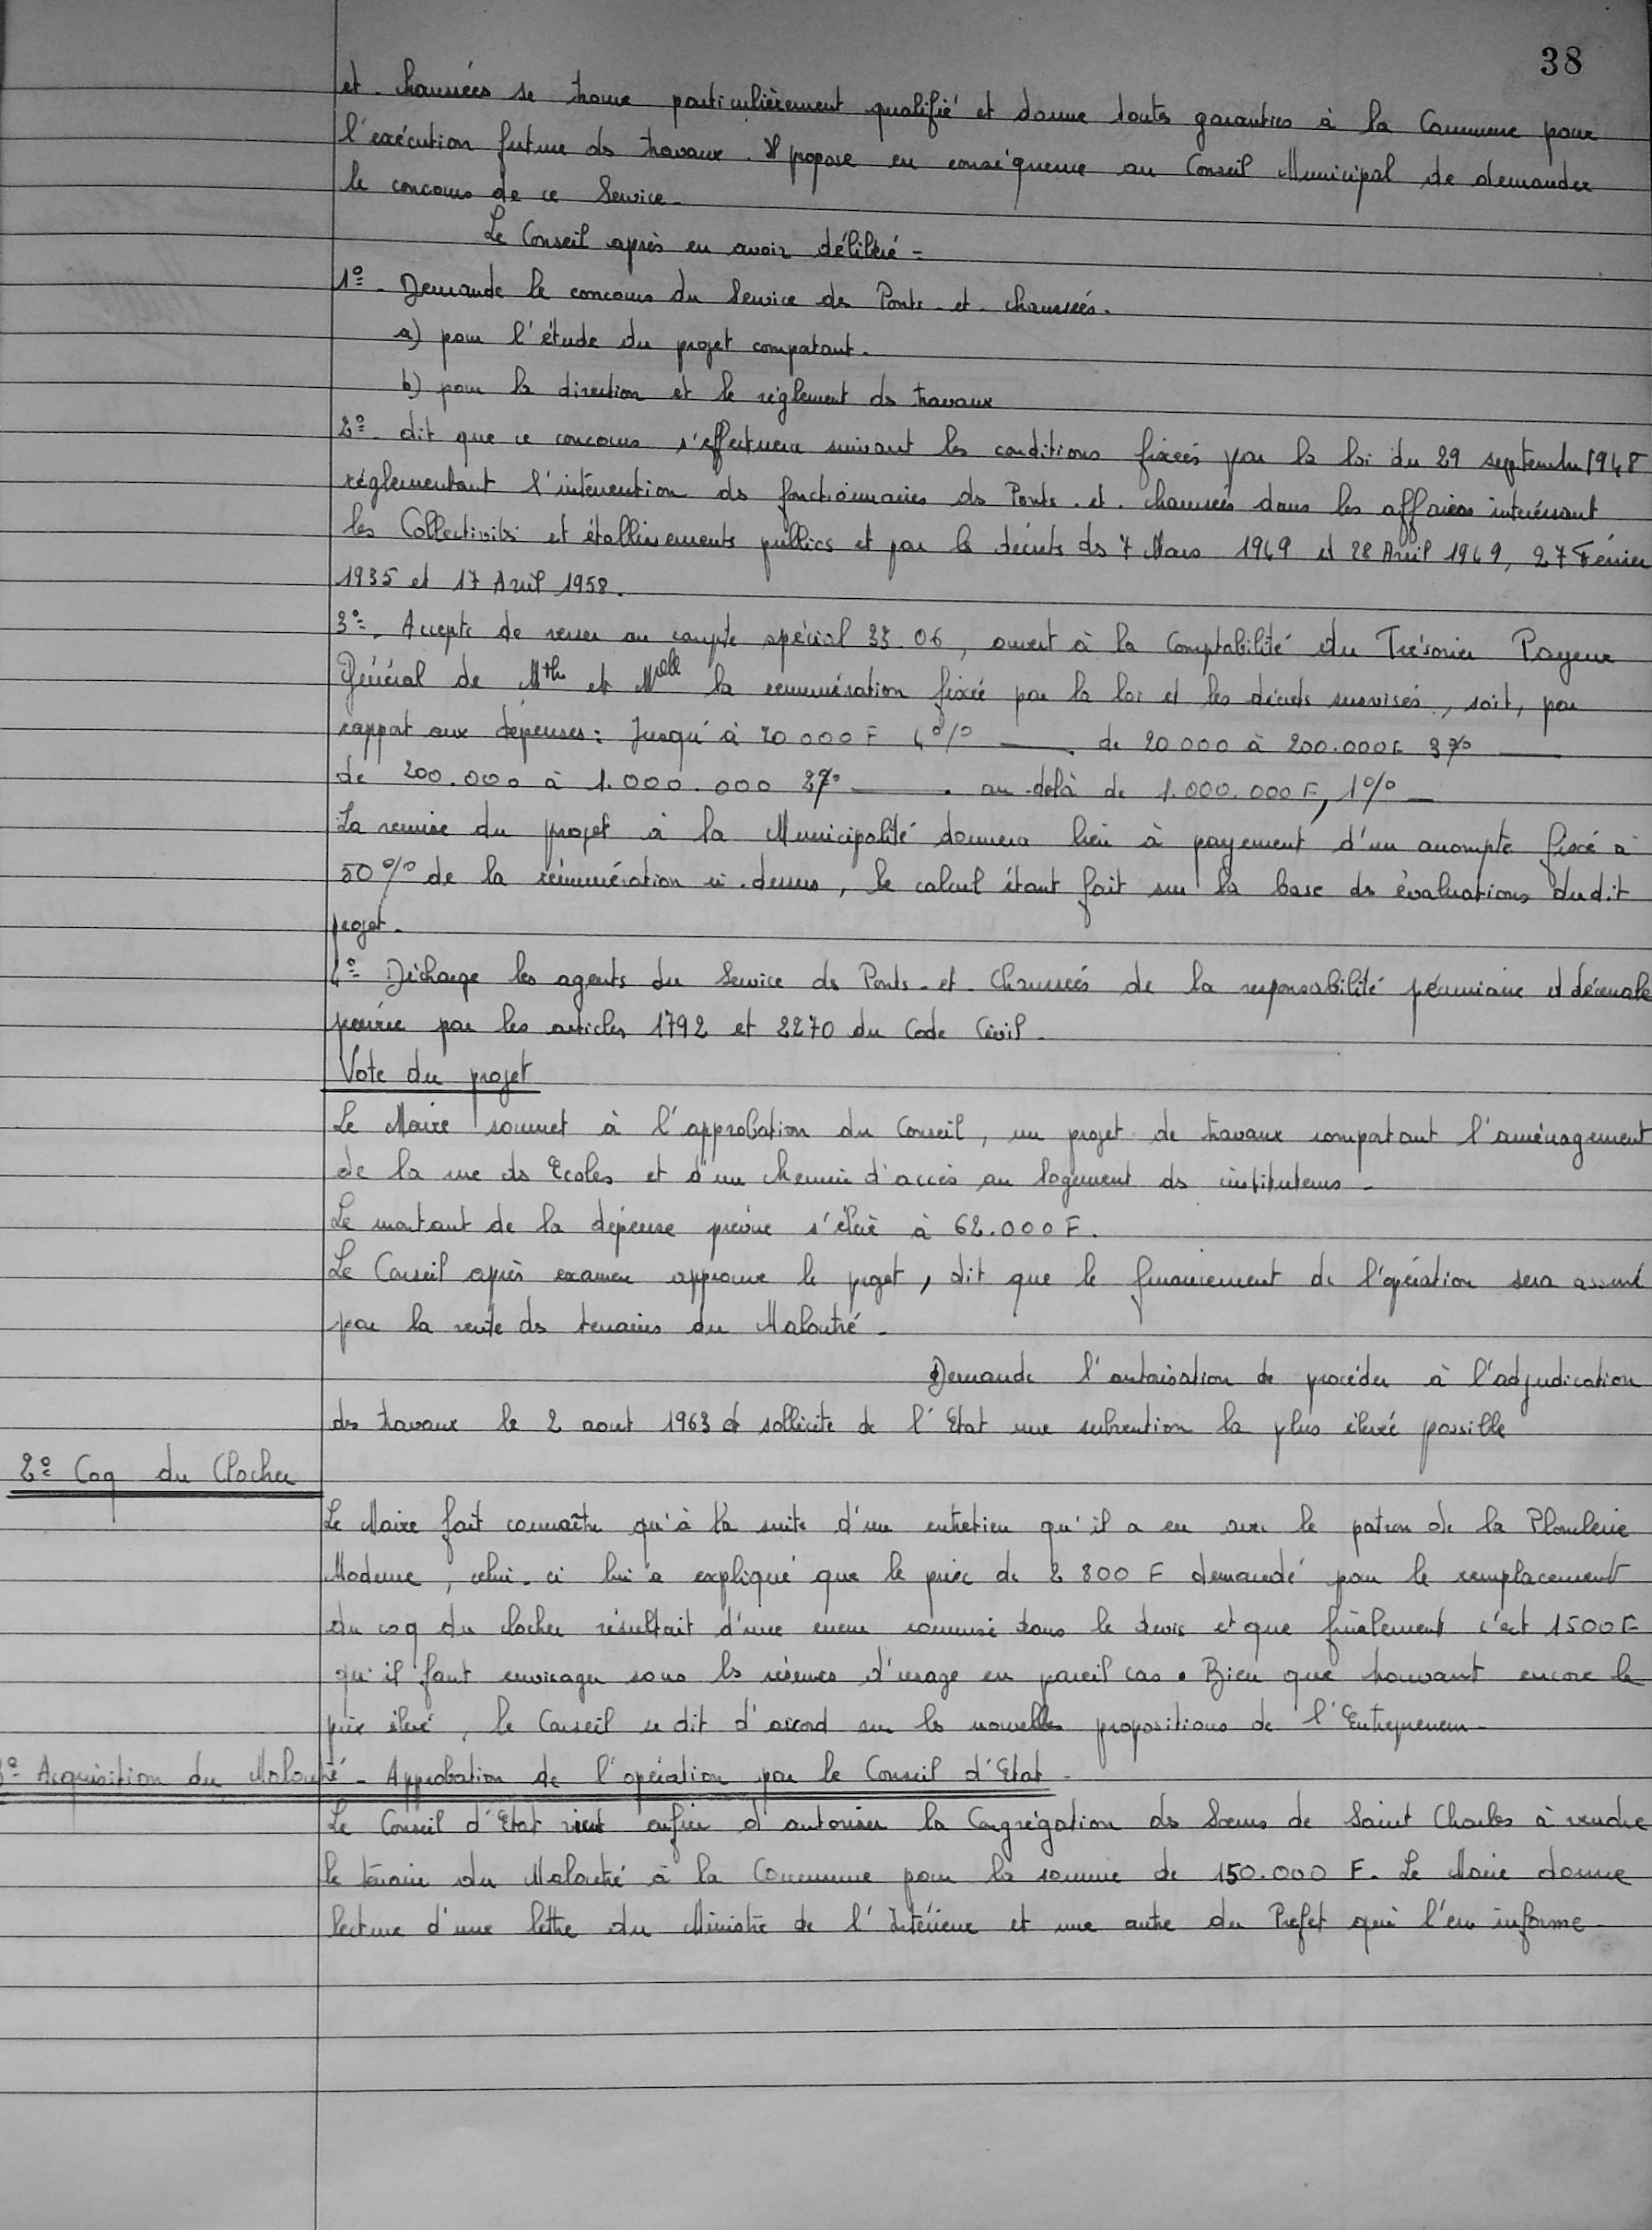 38
et - chaussées se trouve particulièrement qualifié et donne toutes garanties à la Commune pour
l'exécution future des travaux. Il propose en conséquence au Conseil Municipal de demander
le concours de ce Service -
Le Conseil après en avoir délibéré =
1º - Demande le concours du Service des Ponts - et - chaussées.
a) pour l'étude du projet comportant.
b) pour la direction et le règlement des travaux
2º - dit que ce concours s'effectuera suivant les conditions fixées par la loi du 29 septembre 1948
réglementant l'intervention des fonctionnaires des Ponts - et - chaussées dans les affaires intéressant
les Collectivités et établissements publics et par les décrets des 7 Mars 1949 et 28 Avril 1949, 27 Février
1935 et 17 Avril 1958.
3º - Accepte de verser au compte spécial 33.06, ouvert à la Comptabilité du Trésorier Payeur
Général de Mthe et Melle la rémunération fixée par la loi et les décrets susvisés, soit, par
rapport aux dépenses : Jusqu'à 20 000 F 4% —. de 20 000 à 200.000 F 3% —
de 200.000 à 1.000.000 2% —. au-delà de 1.000.000 F, 1% —
La remise du projet à la Municipalité donnera lieu à payement d'un acompte fixé à
50 % de la rémunération ci-dessus, le calcul étant fait sur la base des évaluations dudit
projet.
4º Décharge les agents du Service des Ponts - et - Chaussées de la responsabilité pécuniaire et décennale
prévue par les articles 1792 et 2270 du Code Civil.
Vote du projet
Le Maire soumet à l'approbation du Conseil, un projet de travaux comportant l'aménagement
de la rue des Ecoles et d'un chemin d'accès au logement des instituteurs -
Le montant de la dépense prévue s'élève à 62.000 F.
Le Conseil après examen approuve le projet, dit que le financement de l'opération sera assuré
par la vente des terrains du Maloutré -
Demande l'autorisation de procéder à l'adjudication
des travaux le 2 aout 1963 et sollicite de l'Etat une subvention la plus élevée possible
2º Coq du Clocher
Le Maire fait connaître qu'à la suite d'un entretien qu'il a eu avec le patron de la Plomberie
Moderne, celui-ci lui a expliqué que le prix de 2 800 F demandé pour le remplacement
du coq du clocher résultait d'une erreur commise dans le devis et que finalement c'est 1500 F
qu'il faut envisager sous les réserves d'usage en pareil cas. Bien que trouvant encore le
prix élevé, le Conseil se dit d'accord sur les nouvelles propositions de l'Entrepreneur -
3º Acquisition du Maloutré - Approbation de l'opération par le Conseil d'Etat -
Le Conseil d'Etat vient enfin d'autoriser la Congrégation des Soeurs de Saint Charles à vendre
le terrain du Maloutré à la Commune pour la somme de 150.000 F. Le Maire donne
lecture d'une lettre du Ministre de l'Intérieur et une autre du Préfet qui l'en informe -